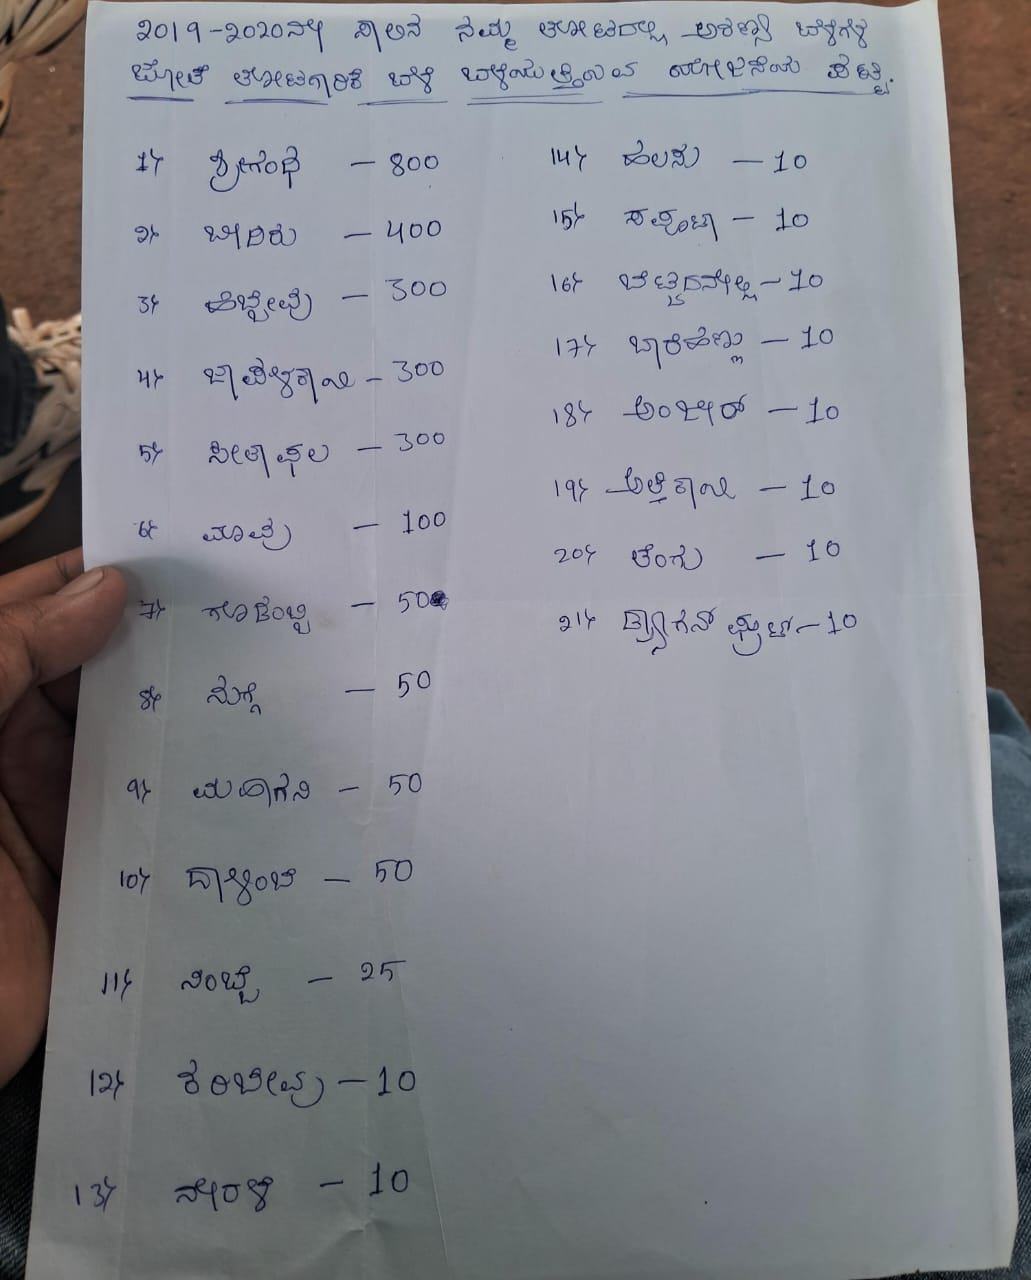 2019-2020ನೇ ಸಾಲಿನ ನಮ್ಮ ತೋಟದಲ್ಲಿ ಅರಣ್ಯ ಬೆಳೆಗಳ
ಜೋತೆ ತೋಟಗಾರಿಕೆ ಬೆಳೆ ಬೆಳೆಯುತ್ತಿರುವ ಯೋಜನೆಯ ಪಟ್ಟಿ.
1) ಶ್ರೀಗಂಧ - 800
2) ಬಿದಿರು - 400
3) ಹೆಬ್ಬೇವು - 300
4) ಜಾಪಳಕಾಯಿ - 300
5) ಸೀತಾಫಲ - 300
6) ಮಾವು - 100
7) ಗೋಡಂಬಿ - 50
8) ನುಗ್ಗೆ - 50
9) ಮಹಾಗನಿ - 50
10) ದಾಳಿಂಬೆ - 50
11) ನಿಂಬೆ - 25
12) ಕರಿಬೇವು - 10
13) ನೇರಳೆ - 10
14) ಹಲಸು - 10
15) ಸಪೋಟಾ - 10
16) ಬೆಟ್ಟದನೇಲ್ಲಿ - 10
17) ಬಾರೆಹಣ್ಣು - 10
18) ಅಂಜೀರ್ - 10
19) ಅತ್ತಿಕಾಯಿ - 10
20) ತೆಂಗು - 10
21) ಡ್ರ್ಯಾಗನ್ ಫ್ರುಟ್ - 10